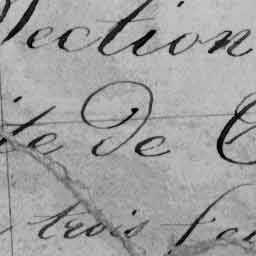 Section
ite de
trois